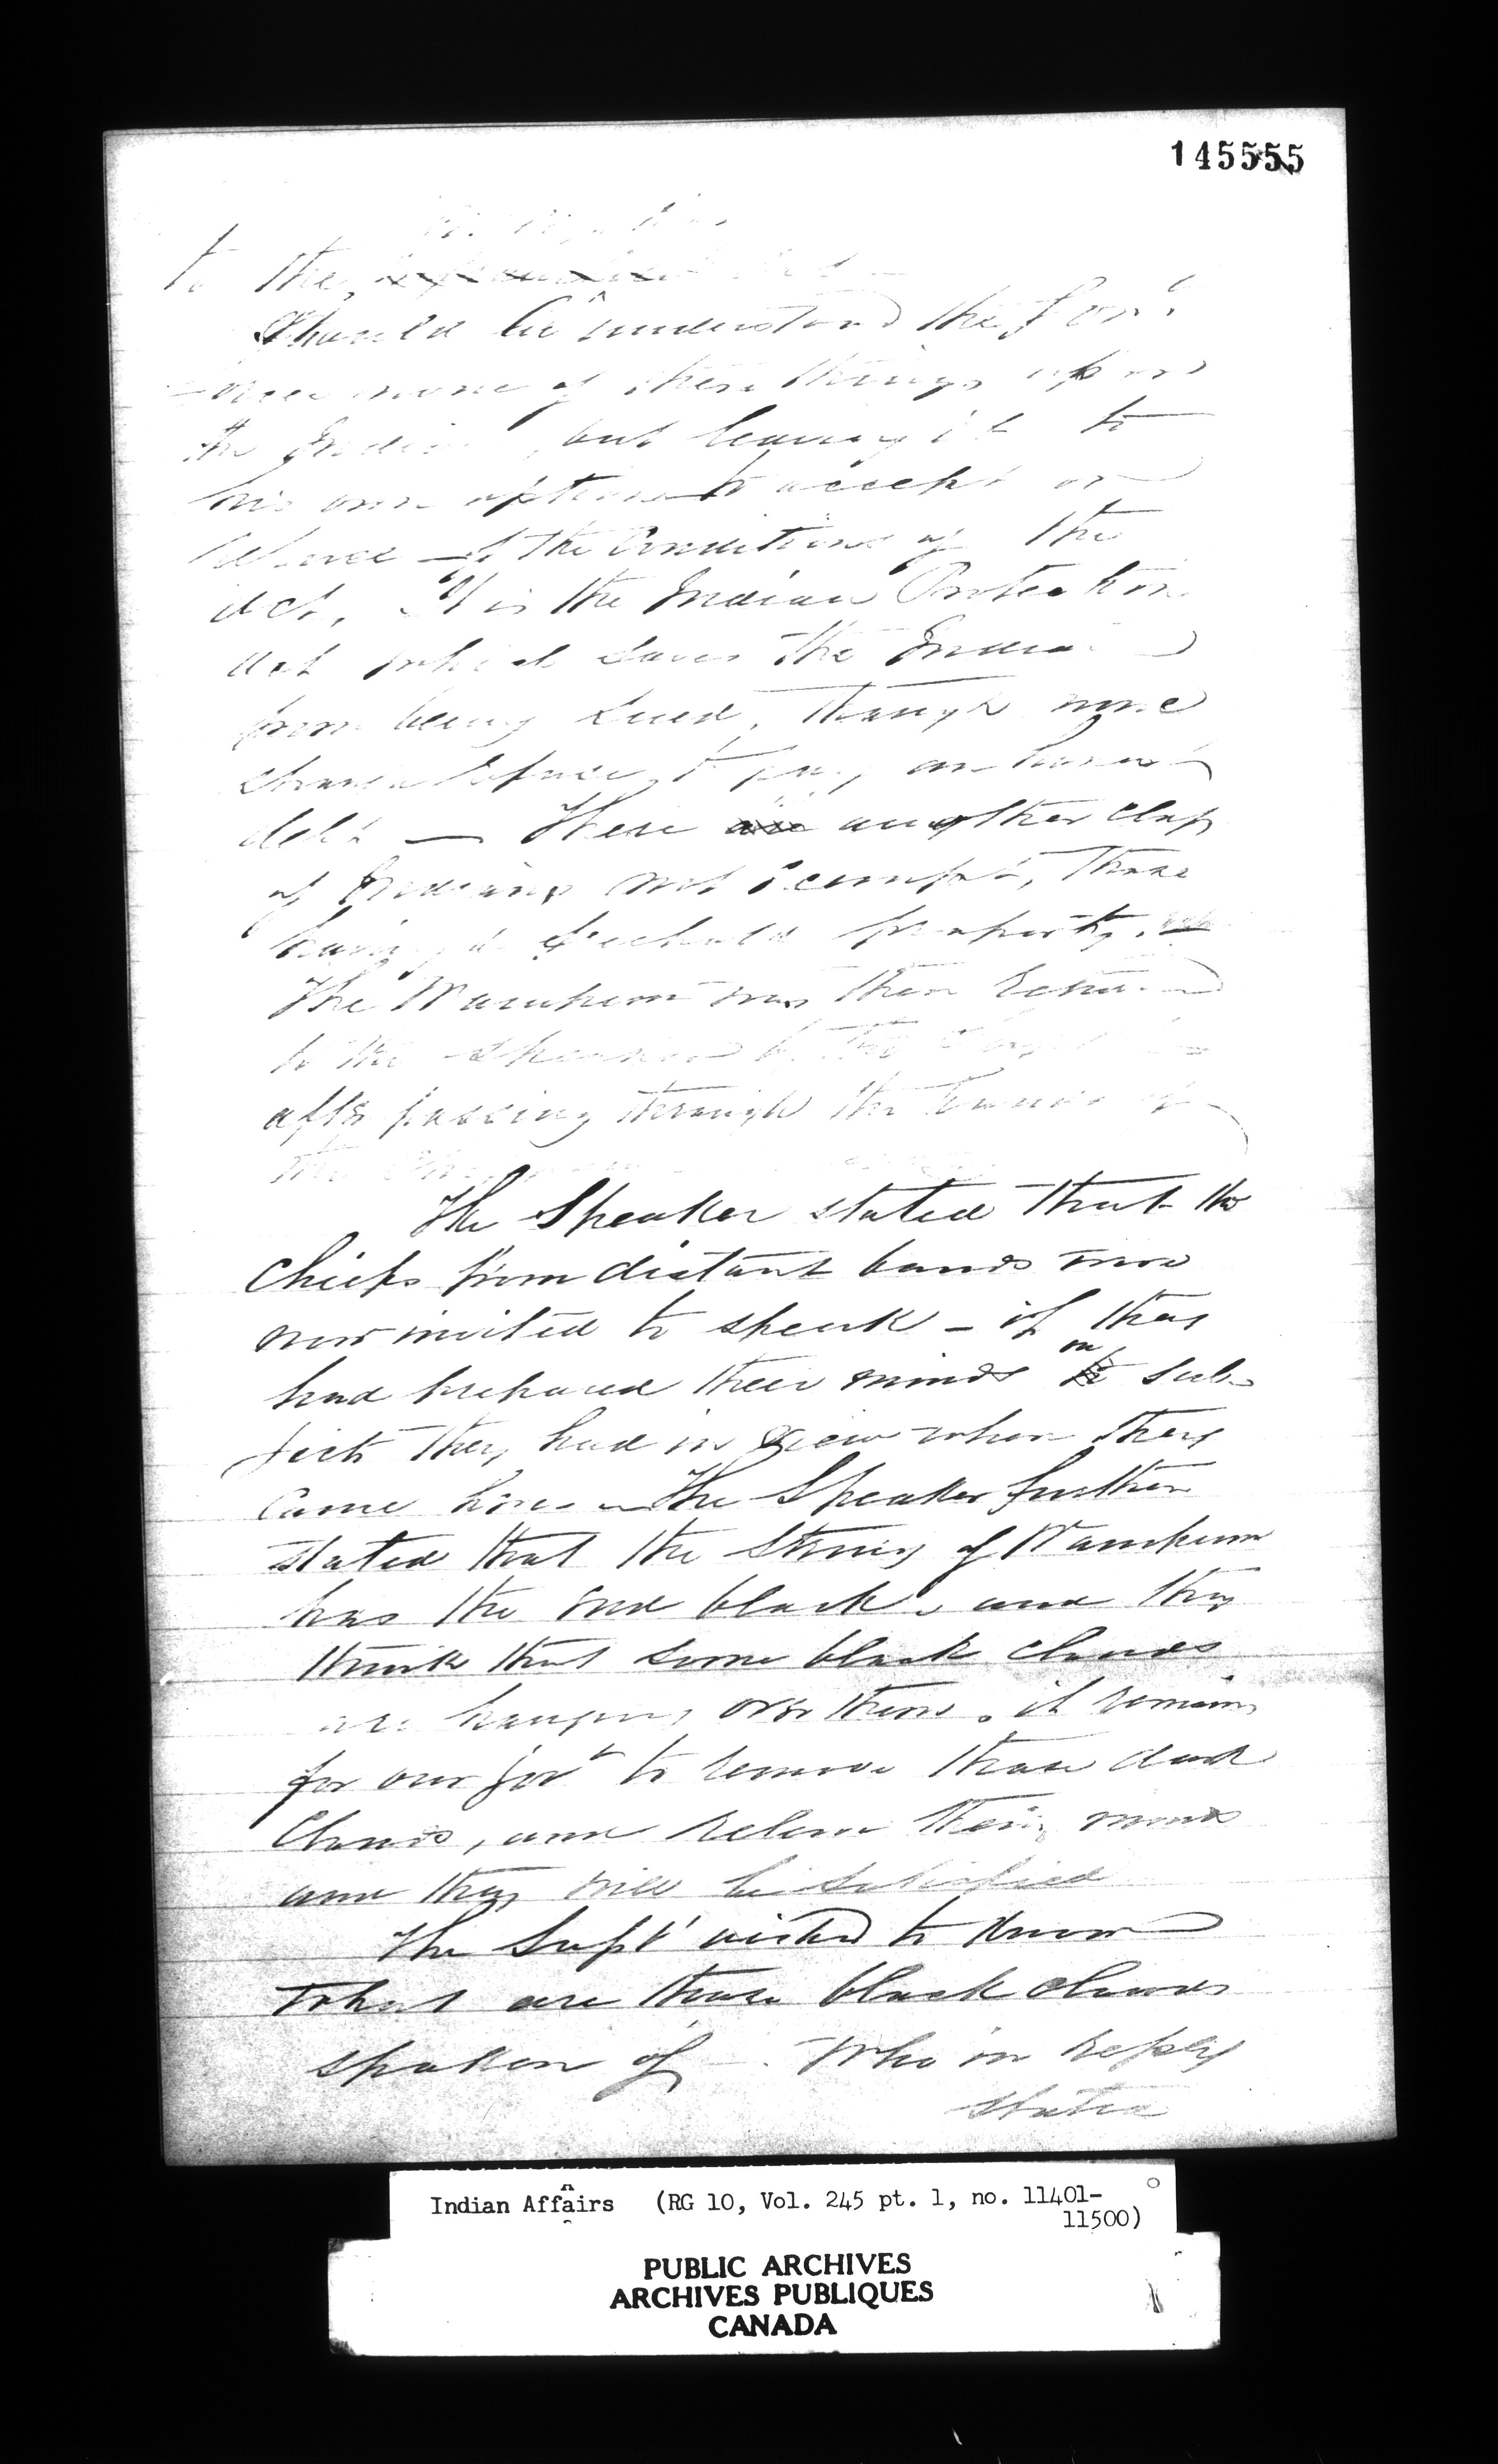 145555
to the
Should be understood the Govt
none of these things upon
the Indian, but leaving it to
his own option to accept or
the Conditions of the
act. It is the Indian Protection
act which saves the Indian
from being sued, though none
should refuse to pay an honest
debt — There another class
of Indians not exempt, those
having freehold property.
The Wampum was then returned
to the Speaker by the
after passing through the hands of
the
The Speaker stated that the
Chiefs from distant bands were
now invited to speak – if they
had prepared their minds on sub-
jects they had in view when they
came here – The Speaker further
stated that the String of Wampum
has the end black, and they
think that some black clouds
are hanging over them. it remains
for our Govt to remove those dark
Clouds, and relieve their minds
and they will be satisfied
The Supt wished to know
what are those black clouds
spoken of – Who in reply
stated
Indian Affairs (RG 10, Vol. 245 pt. 1, no. 11401-
11500)
PUBLIC ARCHIVES
ARCHIVES PUBLIQUES
CANADA